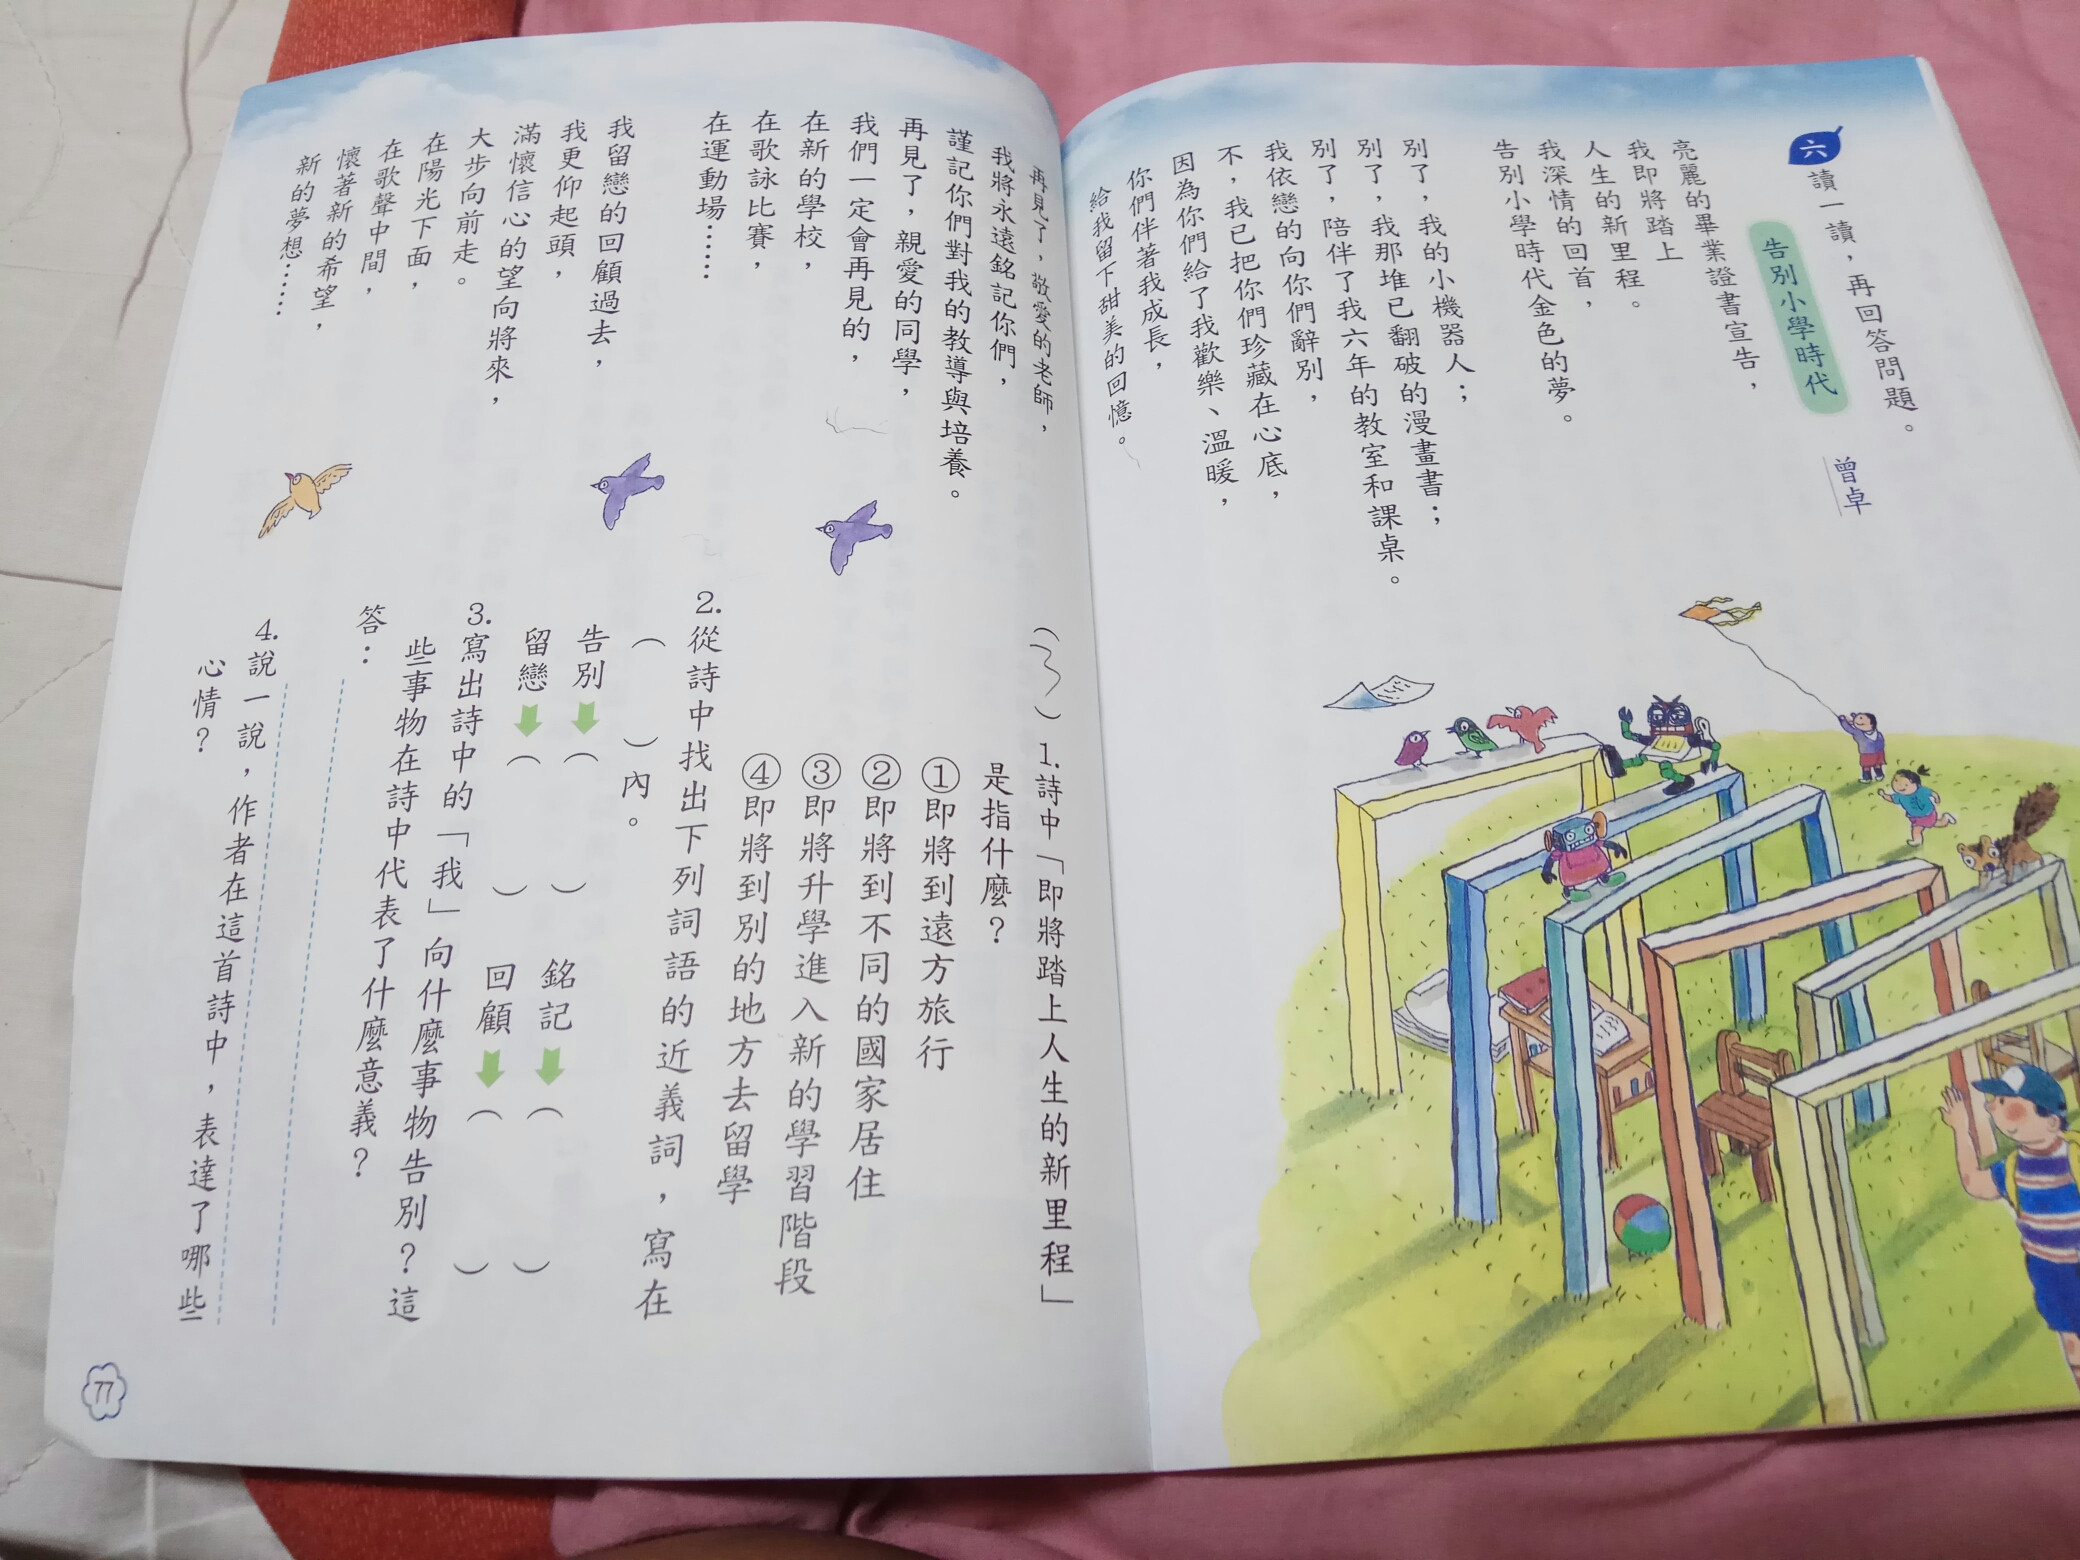 六 讀一讀，再回答問題。
告別小學時代 曾卓
亮麗的畢業證書宣告，
我即將踏上
人生的新里程。
我深情的回首，
告別小學時代金色的夢。
別了，我的小機器人；
別了，我那堆已翻破的漫畫書；
別了，陪伴了我六年的教室和課桌。
我依戀的向你們辭別，
不，我已把你們珍藏在心底，
因為你們給了我歡樂、溫暖，
你們伴著我成長，
給我留下甜美的回憶。
再見了，敬愛的老師，
我將永遠銘記你們，
謹記你們對我的教導與培養。
再見了，親愛的同學，
我們一定會再見的，
在新的學校，
在歌詠比賽，
在運動場……
我留戀的回顧過去，
我更仰起頭，
滿懷信心的望向將來，
大步向前走。
在陽光下面，
在歌聲中間，
懷著新的希望，
新的夢想……
（3）1.詩中「即將踏上人生的新里程」
是指什麼？
①即將到遠方旅行
②即將到不同的國家居住
③即將升學進入新的學習階段
④即將到別的地方去留學
2.從詩中找出下列詞語的近義詞，寫在
（　）內。
告別（　） 銘記（　）
留戀（　） 回顧（　）
3.寫出詩中的「我」向什麼事物告別？這
些事物在詩中代表了什麼意義？
答：
4.說一說，作者在這首詩中，表達了哪些
心情？
77